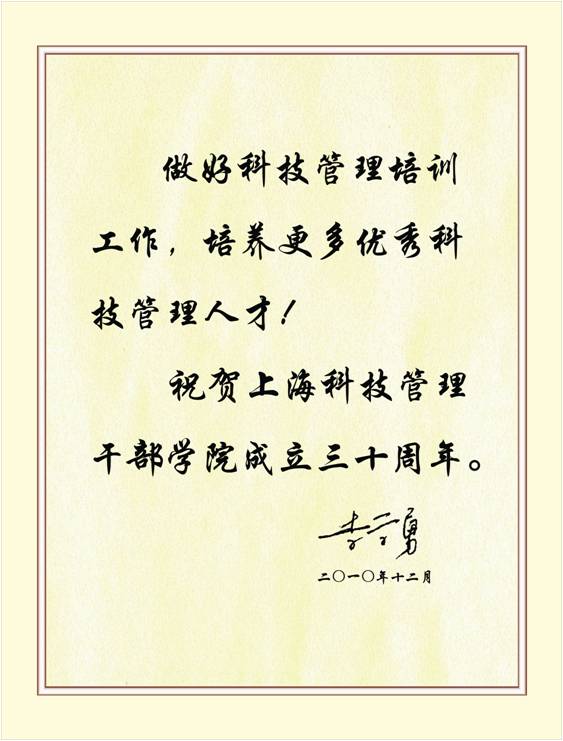 做好科技管理培训
工作，培养更多优秀科
技管理人才！
祝贺上海科技管理
干部学院成立三十周年。
二〇一〇年十二月